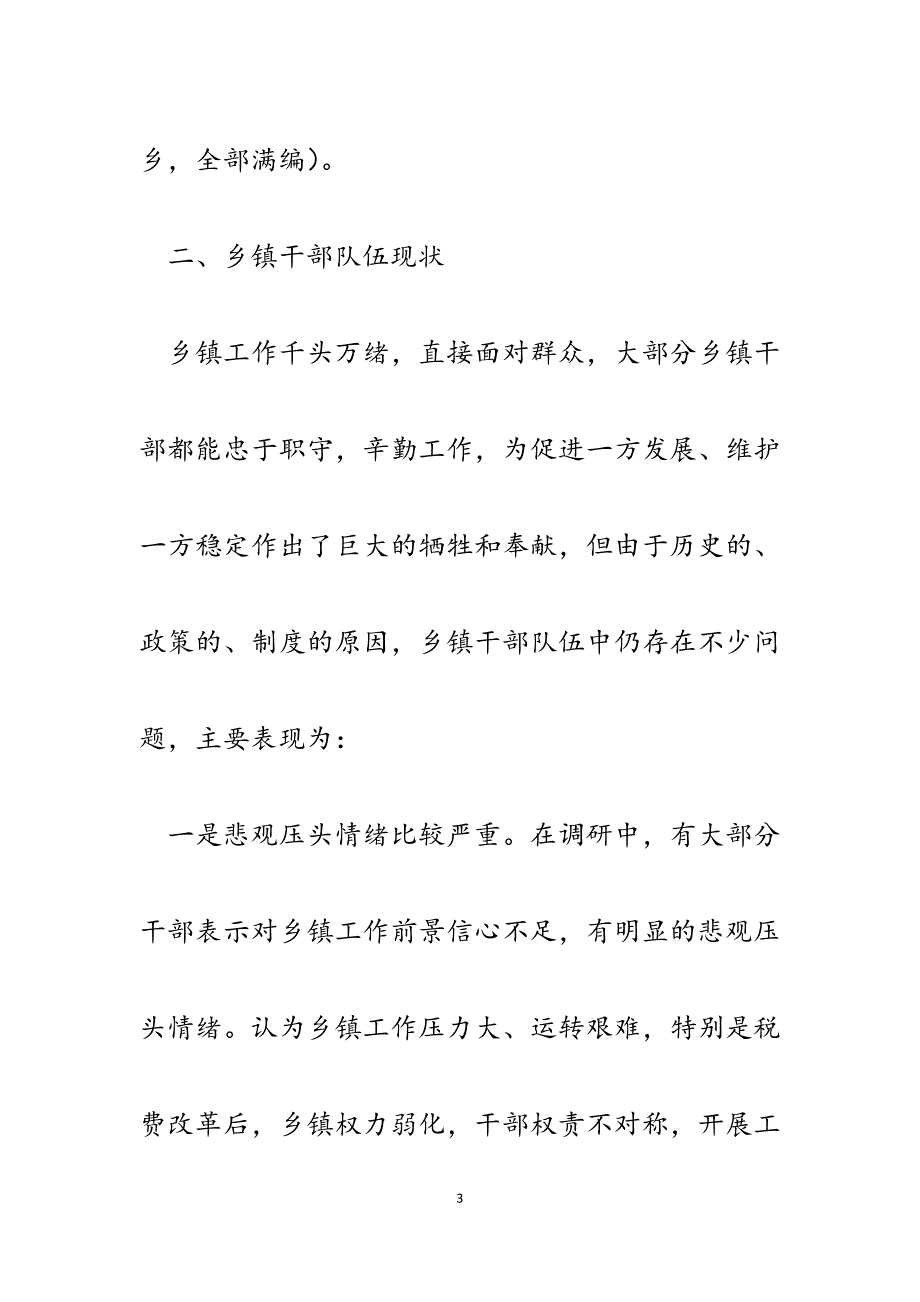 乡，全部满编）。
二、乡镇干部队伍现状
乡镇工作千头万绪，直接面对群众，大部分乡镇干
部都能忠于职守，辛勤工作，为促进一方发展、维护
一方稳定作出了巨大的牺牲和奉献，但由于历史的、
政策的、制度的原因，乡镇干部队伍中仍存在不少问
题，主要表现为：
一是悲观压头情绪比较严重。在调研中，有大部分
干部表示对乡镇工作前景信心不足，有明显的悲观压
头情绪。认为乡镇工作压力大、运转艰难，特别是税
费改革后，乡镇权力弱化，干部权责不对称，开展工
3